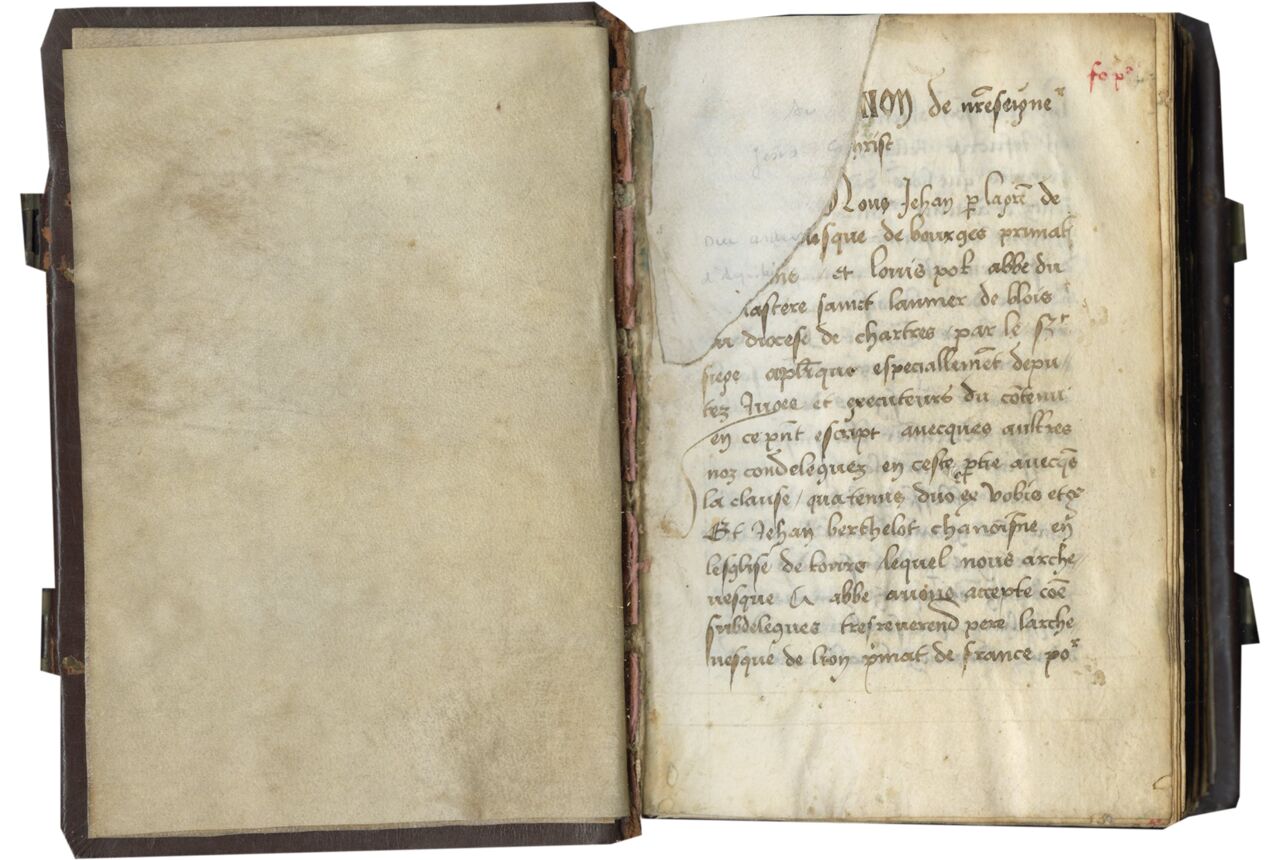 fo p.o
NOM de nrẽseigne r
hrist
Nous Jehan p̱ la grẽ de
esque de bourges primat
ne et louis pot abbe du
astere sainct laumer de blois
du diocese de chartres par le st
siege apl̃ique especiallemẽt depu
tez Juges et executeurs du cõtenu
en ce pñt escript auecques aultres
noz condeleguez en ceste ptie auecqs̃
la clause / quatenus duo ex vobis etc
Et Jehan berthelot chanoisne en
lesglise de tours lequel nous arche
uesque & abbe auons accepte cõe
subdelegues tresreuerend pere larche
uesque de lion p̃mat de france por